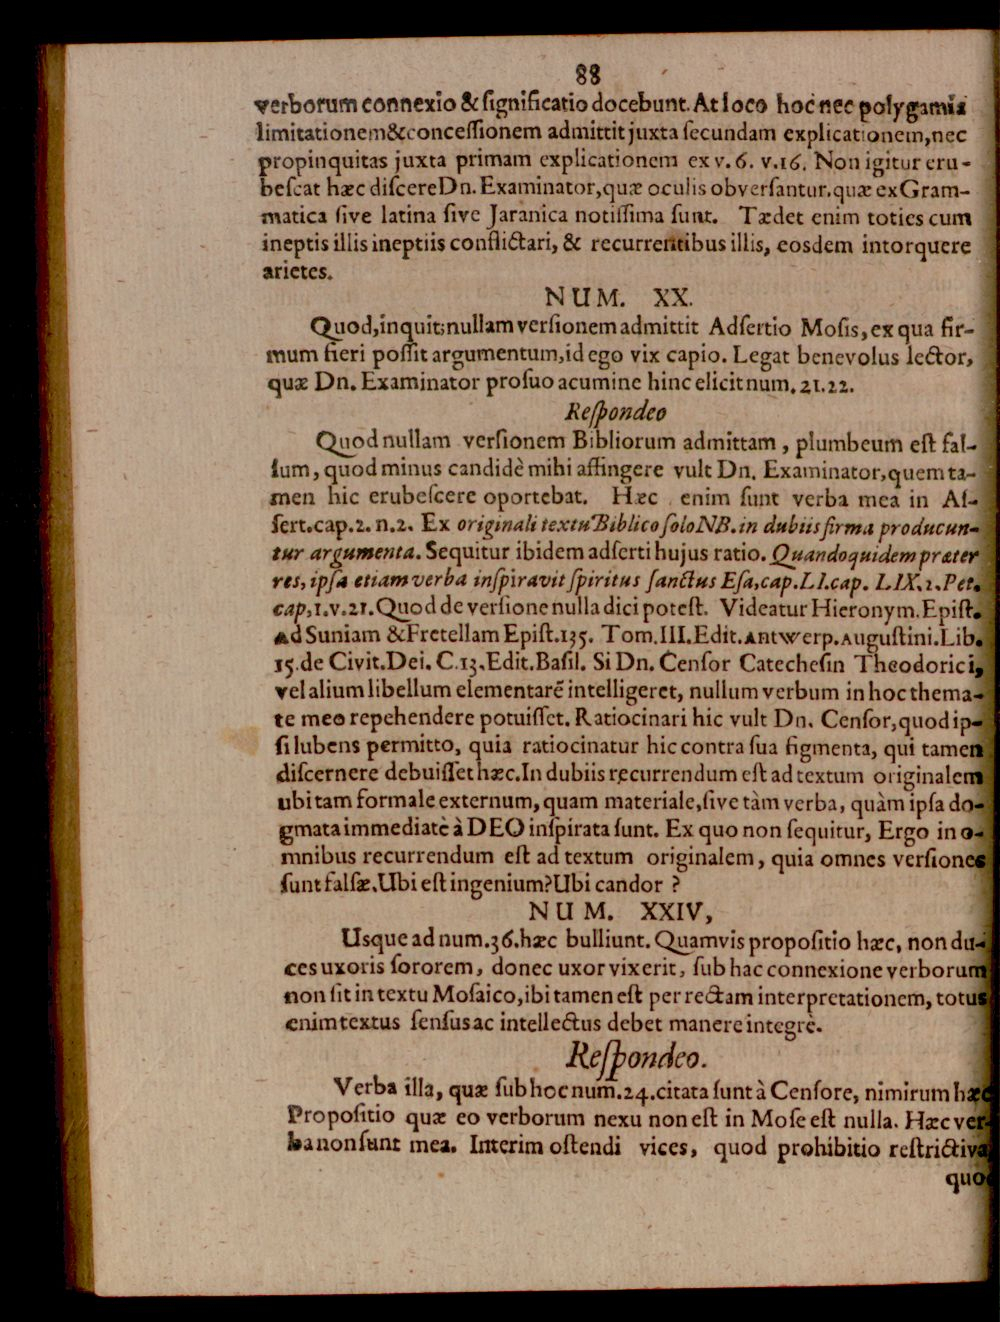 88
verborum connexio & ſignificatio docebunt. At loco hoc nec polygamiæ
limitationem & conceſſionem admittit juxta ſecundam explicationem, nec
propinquitas juxta primam explicationem ex v. 6. v. 16. Non igitur eru-
beſcat hæc diſcere Dn. Examinator, quæ oculis obverſantur, quæ ex Gram-
matica ſive latina ſive Jaranica notiſſima ſunt. Tædet enim toties cum
ineptis illis ineptiis conflictari, & recurrentibus illis, eosdem intorquere
arietes.
NUM. XX.
Quod, inquit; nullam verſionem admittit Adſertio Moſis, ex qua fir-
mum fieri poſſit argumentum, id ego vix capio. Legat benevolus lector,
quæ Dn. Examinator pro ſuo acumine hinc elicit num. 21. 22.
Reſpondeo
Quod nullam verſionem Bibliorum admittam, plumbeum eſt fal-
ſum, quod minus candidè mihi affingere vult Dn. Examinator, quem ta-
men hic erubeſcere oportebat. Hæc enim ſunt verba mea in Aſ-
ſert. cap. 2. n. 2. Ex originali textu Biblico ſolo NB. in dubiis firma producun-
tur argumenta. Sequitur ibidem adſerti hujus ratio. Quandoquidem præter
res, ipſa etiam verba inſpiravit ſpiritus ſanctus Eſa, cap. LI. cap. LIX. 2. Pet.
cap, 1. v. 21. Quod de verſione nulla dici poteſt. Videatur Hieronym. Epiſt.
Ad Suniam & Fretellam Epiſt. 135. Tom. III. Edit. Antwerp. Auguſtini. Lib.
15. de Civit. Dei. C. 13. Edit. Baſil. Si Dn. Cenſor Catecheſin Theodorici,
vel alium libellum elementarẽ intelligeret, nullum verbum in hoc thema-
te meo repehendere potuiſſet. Ratiocinari hic vult Dn. Cenſor, quod ip-
ſi lubens permitto, quia ratiocinatur hic contra ſua figmenta, qui tamen
diſcernere debuiſſet hæc. In dubiis recurrendum eſt ad textum originalem
ubi tam formale externum, quam materiale, ſive tàm verba, quàm ipſa do-
gmata immediatè à DEO inſpirata ſunt. Ex quo non ſequitur, Ergo in o-
mnibus recurrendum eſt ad textum originalem, quia omnes verſiones
ſunt falſæ. Ubi eſt ingenium? Ubi candor ?
NUM. XXIV,
Usque ad num. 36. hæc bulliunt. Quamvis propoſitio hæc, non du-
ces uxoris ſororem, donec uxor vixerit, ſub hac connexione verborum
non ſit in textu Moſaico, ibi tamen eſt per rectam interpretationem, totus
enim textus ſenſus ac intellectus debet manere integrè.
Reſpondeo.
Verba illa, quæ ſub hoc num. 24. citata ſunt à Cenſore, nimirum hæc
Propoſitio quæ eo verborum nexu non eſt in Moſe eſt nulla. Hæc ver-
ba non ſunt mea. Interim oſtendi vices, quod prohibitio reſtrictiva
quo